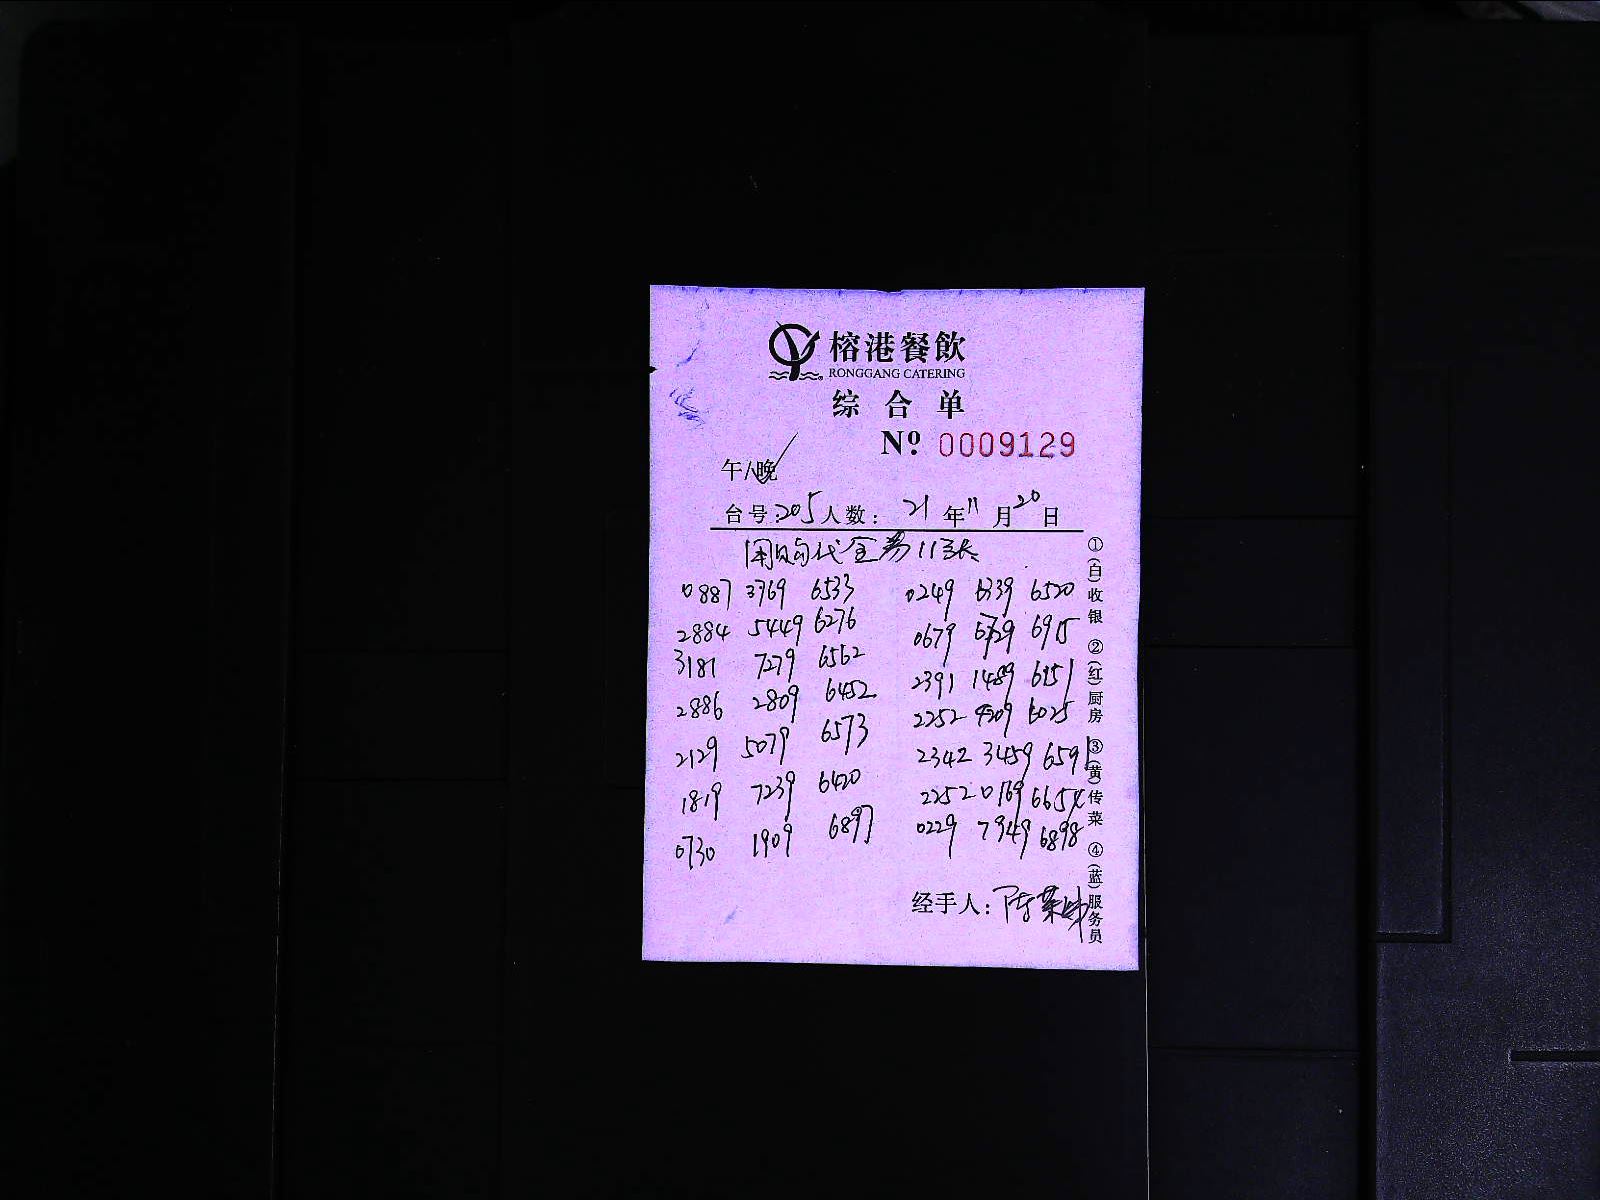 榕港餐飲
RONGGANG CATERING
综合单
Nº 0009129
午/晚
台号:205人数: 21年11月20日
代金券11张
0887 3769 6533 0249 6339 6520
2884 5449 6276 0679 6729 6915
3181 7279 6562 2391 1489 6951
2886 2809 6452 2252 4209 6025
2129 5079 6573 2342 3459 6591
1819 7239 6420 2252 0169 6654
0730 1909 6897 0229 7949 6898
经手人:
①(白)收银 ②(红)厨房 ③(黄)传菜 ④(蓝)服务员